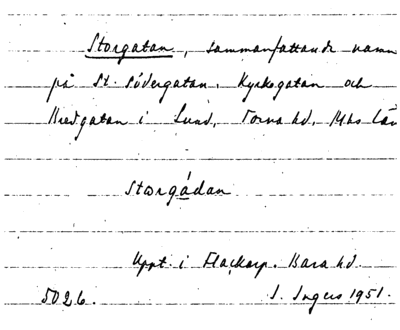 Storgatan, sammanfattande namn
på St. Södergatan, Kyrkogatan och
Bredgatan i Lund, Torna hd, Mhs län
Storgådan
Uppt. i Flackarp. Bara hd.
5026. I. Ingers 1951.